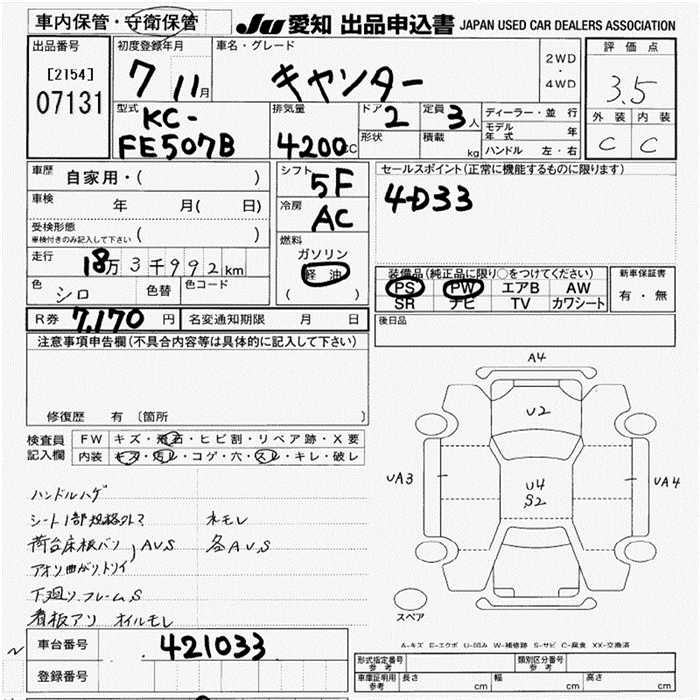 車内保管・守衛保管
JU 愛知 出品申込書 JAPAN USED CAR DEALERS ASSOCIATION
出品番号
[2154]
07131
初度登録年月
7 11月
車名・グレード
キャンター
2WD
・
4WD
評価点
3.5
外装 内装
C C
型式
KC-
FE507B
排気量
4200cc
ドア
2
形状
定員
3人
積載
kg
ディーラー・並行
モデル年式 年
ハンドル 左・右
車歴
自家用・( )
車検
年 月( 日)
受検形態
車検付きのみ記入して下さい ( )
走行
18万3千992km
色
シロ
色替
色コード
R券 7,170 円
名変通知期限 月 日
シフト
5F
冷房
AC
燃料
ガソリン
軽油
( )
セールスポイント(正常に機能するものに限ります)
4D33
装備品(純正品に限り○をつけてください)
PS PW エアB AW
SR ナビ TV カワシート
新車保証書
有・無
後日品
注意事項申告欄(不具合内容等は具体的に記入して下さい)
修復歴 有 〔箇所 〕
検査員記入欄
FW キズ・飛石・ヒビ割・リペア跡・X要
内装 キズ・汚レ・コゲ・穴・スレ・キレ・破レ
ハンドルハゲ
シート1部規格外マ ネモレ
荷台床板バソ,AUS 各AUS
アオリ曲がり,トリイ
下廻り.フレームS
看板アリ オイルモレ
A4
U2
UA3
U4
S2
UA4
スペア
A-キズ E-エクボ U-凹み W-補修跡 S-サビ C-腐食 XX-交換済
車台番号
421033
登録番号
形式指定番号
参考
類別区分番号
参考
車庫証明用
参考
長さ cm 幅 cm 高さ cm